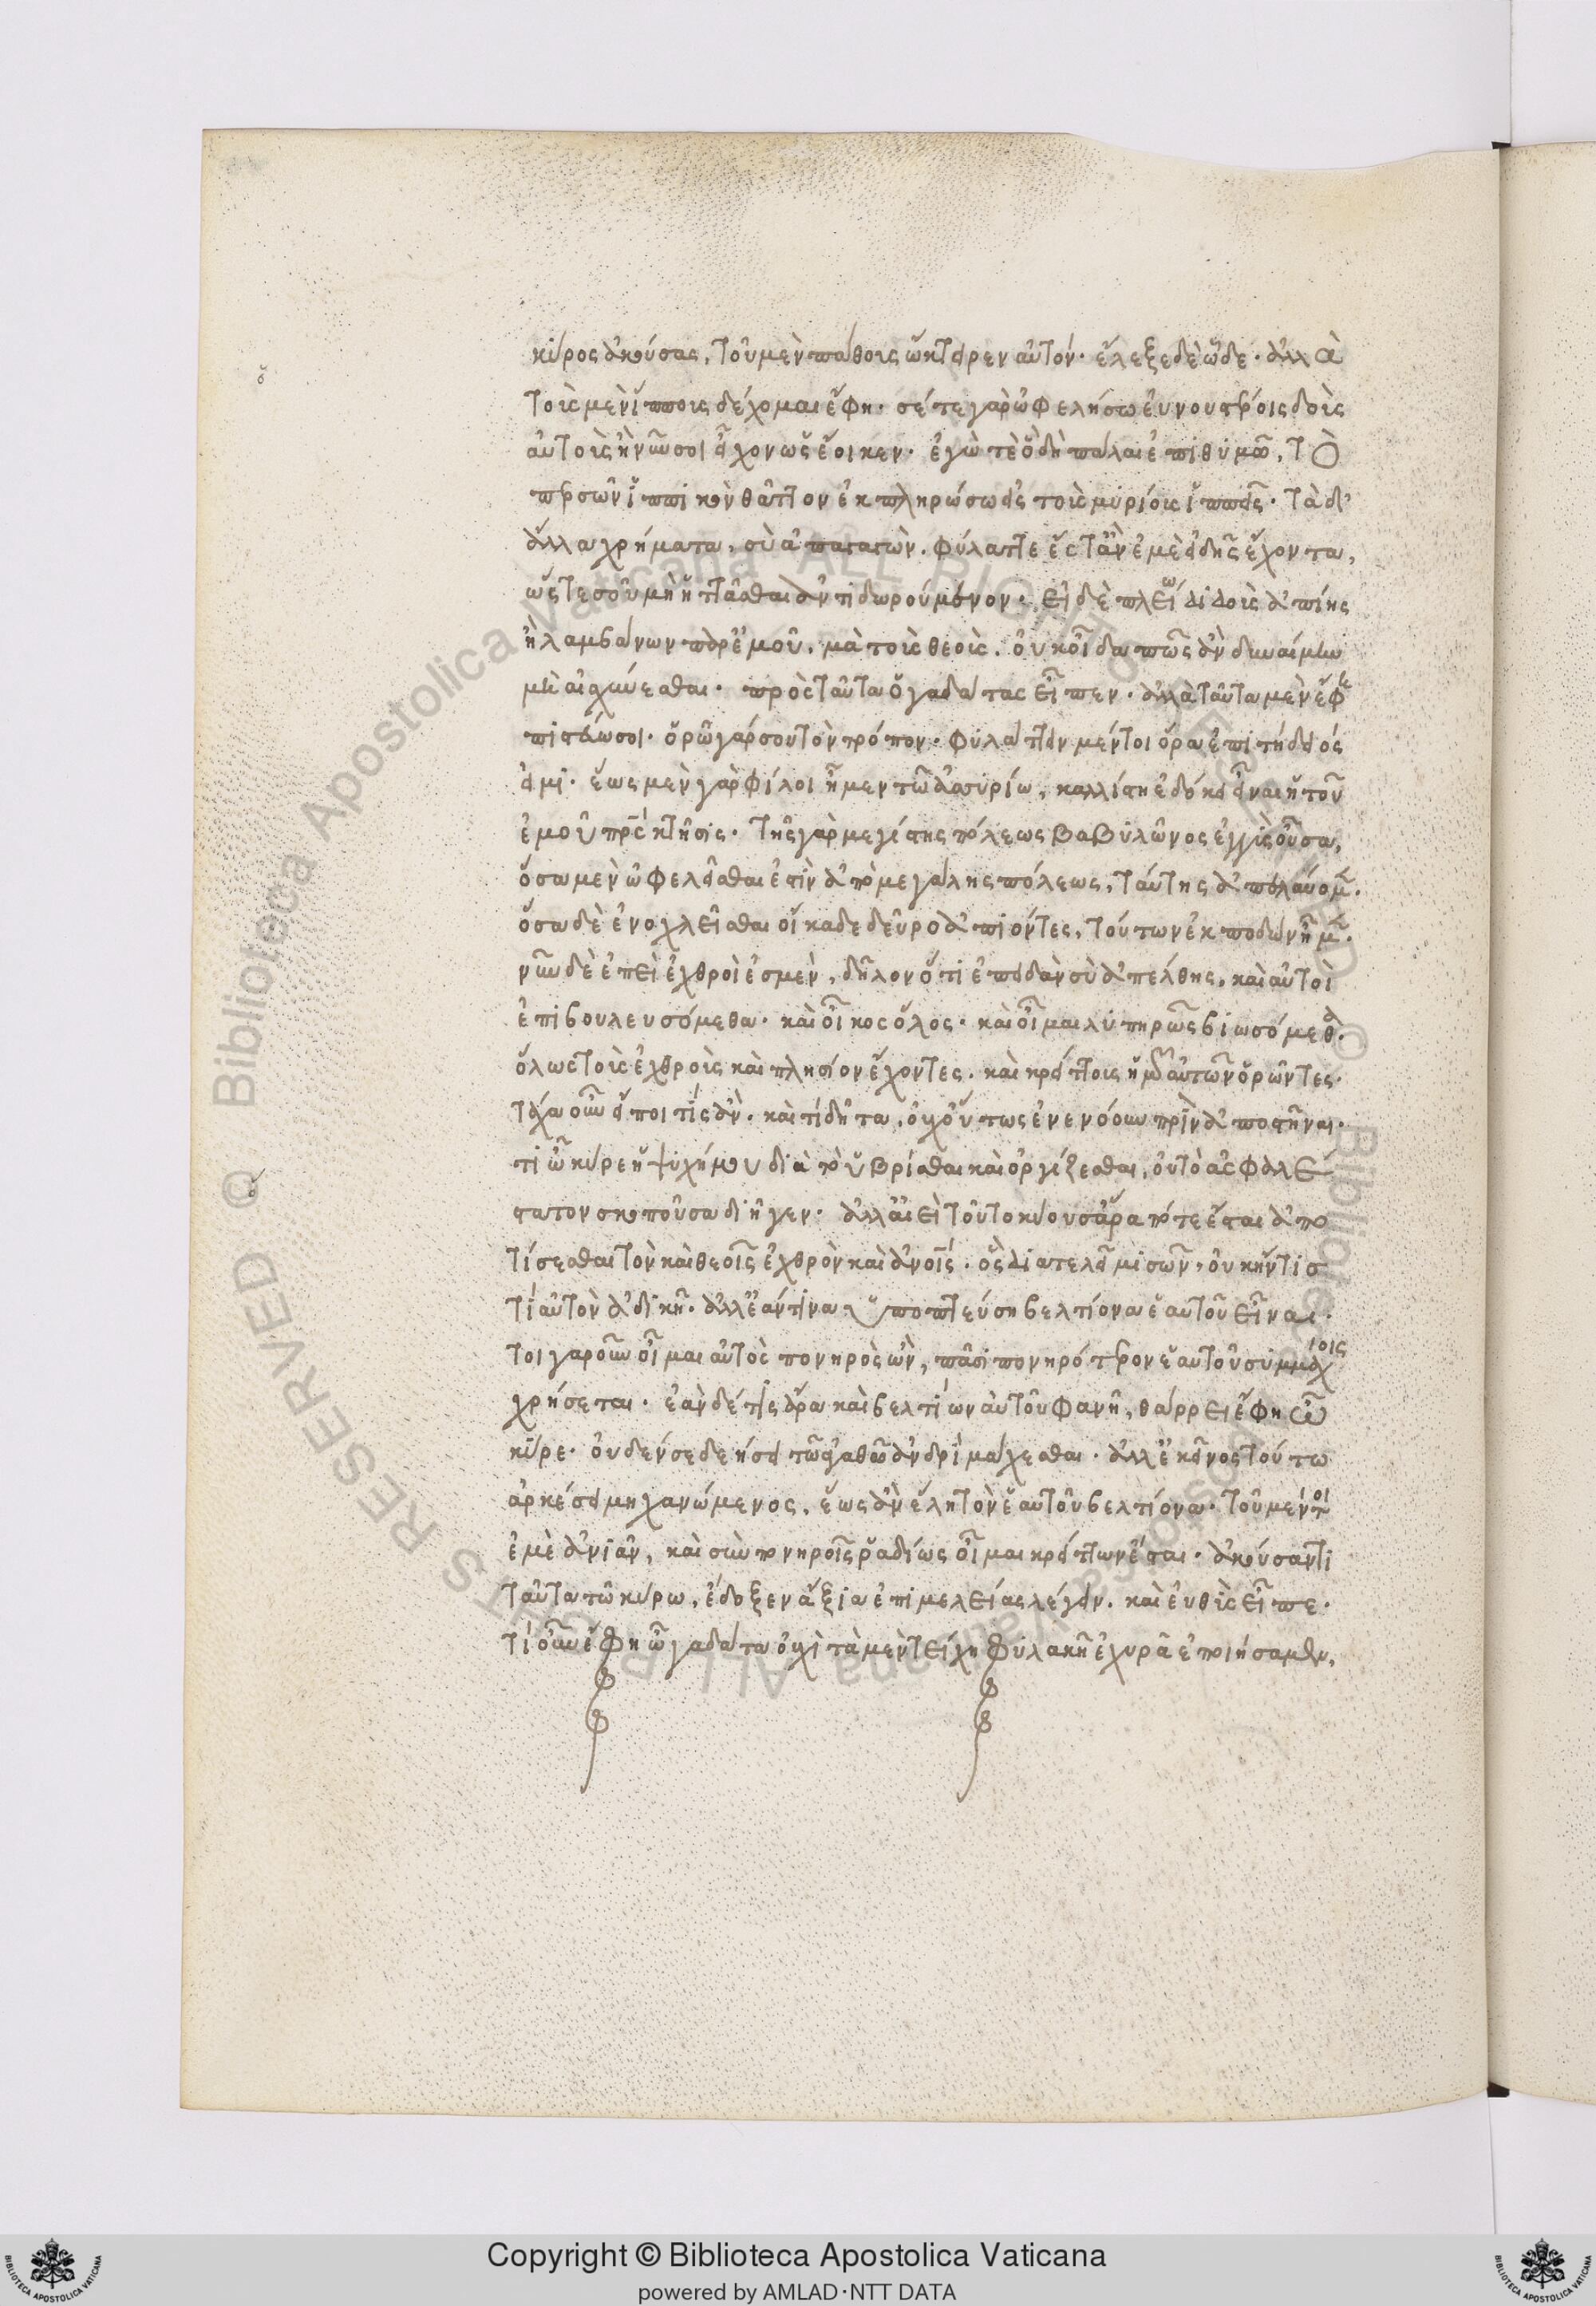 κῦρος ἀκούσας, τοῦ μὲν πάθους ὤκτειρεν αὐτόν· ἔλεξε δὲ ὧδε· ἀλλὰ
τοὺς μὲν ἵππους δέχομαι ἔφη· σέ τε γὰρ ὠφελήσω εὐνουστέροις δοὺς
αὐτοὺς ἢ νῦν σοι εἶχον ὡς ἔοικεν· ἐγώ τε ὃ δὴ πάλαι ἐπιθυμῶ, τὸ
περσῶν ἱππικὸν θᾶττον ἐκπληρώσω εἰς τοὺς μυρίους ἱππεῖς· τὰ δ'
ἄλλα χρήματα, σὺ ἀπαγαγὼν φύλαττε ἔς τ' ἂν ἐμὲ εἰδῇς ἔχοντα,
ὥστε σοῦ μὴ ἡττᾶσθαι ἀντιδωρούμενον· εἰ δὲ πλείω διδοὺς ἀπίης
ἢ λαμβάνων παρ' ἐμοῦ, μὰ τοὺς θεοὺς, οὐκ οἶδα πῶς ἂν δυναίμην
μὴ αἰσχύνεσθαι· πρὸς ταῦτα ὁ γαδάτας εἶπεν· ἀλλὰ ταῦτα μὲν ἔφη
πιστεύω σοι· ὁρῶ γάρ σου τὸν τρόπον· φυλάττειν μέντοι ὅρα εἰ ἐπιτήδειός
εἰμι· ἕως μὲν γὰρ φίλοι ἦμεν τῶ ἀσσυρίω, καλλίστη ἐδόκει εἶναι ἡ τοῦ
ἐμοῦ πατρὸς κτῆσις· τῆς γὰρ μεγίστης πόλεως βαβυλῶνος ἐγγὺς οὖσα,
ὅσα μὲν ὠφελεῖσθαι ἔστιν ἀπὸ μεγάλης πόλεως, ταύτης ἀπελαύομεν·
ὅσα δὲ ἐνοχλεῖσθαι οἴκαδε δεῦρο ἀπιόντες, τούτων ἐκποδὼν ἦμεν·
νῦν δὲ ἐπεὶ ἐχθροὶ ἐσμὲν, δῆλον ὅτι ἐπειδὰν σὺ ἀπέλθης, καὶ αὐτοὶ
ἐπιβουλευσόμεθα· καὶ οἶκος ὅλος· καὶ οἶμαι λυπηρῶς βιωσόμεθα
ὅλως τοὺς ἐχθροὺς καὶ πλησίον ἔχοντες· καὶ κρείττους ἡμῶν αὐτῶν ὁρῶντες·
τάχα οὖν εἴποι τίς ἄν· καὶ τί δῆτα, οὐχ οὕτως ἐνενόουν πρὶν ἀποστῆναι·
τί ὦ κῦρε ἡ ψυχή μου διὰ τὸ ὑβρίσθαι καὶ ὀργίζεσθαι, οὐ τὸ ἀσφαλέ
στατον σκοποῦσα διῆγεν· ἀλλ' ἀεὶ τοῦτο κύουσα ἆρα πότε ἔσται ἀπο
τίσεσθαι τὸν καὶ θεοῖς ἐχθρὸν καὶ ἀνθρώποις· ὃς διατελεῖ μισῶν, οὐκ ἤν τις
τί αὐτὸν ἀδικῇ· ἀλλ' ἐάν τινα ὑποπτεύση βελτίονα ἑαυτοῦ εἶναι·
τοιγαροῦν οἶμαι αὐτὸς πονηρὸς ὢν, πᾶσι πονηροτέροις ἑαυτοῦ συμμάχοις
χρήσεται· ἐὰν δέ τις ἄρα καὶ βελτίων αὐτοῦ φανῇ, θάρρει ἔφη ὦ
κῦρε· οὐδέν σε δεήσει τῶ ἀγαθῶ ἀνδρὶ μάχεσθαι· ἀλλ' ἐκεῖνος τούτω
ἀρκέσει μηχανώμενος, ἕως ἂν ἕλη τὸν ἑαυτοῦ βελτίονα· τοῦ μέντοι
ἐμὲ ἀνιᾶν, καὶ σὺν πονηροῖς ῥαδίως οἶμαι κρείττων ἔσται· ἀκούσαντι
ταῦτα τῶ κύρω, ἔδοξεν ἄξια ἐπιμελείας λέγειν· καὶ εὐθὺς εἶπε·
τί οὖν ἔφη ὦ γαδάτα οὐχὶ τὰ μὲν τείχη φυλακῇ ἐχυρὰ ἐποιήσαμεν,
Copyright © Biblioteca Apostolica Vaticana
powered by AMLAD·NTT DATA